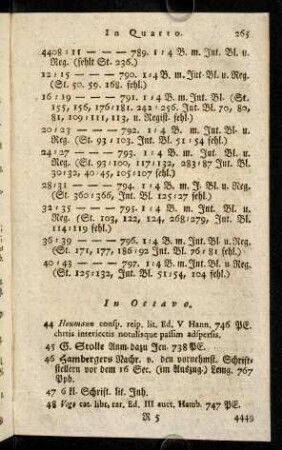 In Quarto. 265
4408:11 — — — 789. 1:4 B. m. Int. Bl. u.
Reg. (fehlt St. 236.)
12:15 — — — 790. 1:4 B. m. Int. Bl. u. Reg.
(St. 50. 59. 168. fehl.)
16:19 — — — 791. 1:4 B. m. Int. Bl. (St.
155, 156, 176:181. 242:256. Int. Bl. 70, 80,
81, 109:111, 113, u. Regist. fehl.)
20:23 — — — 792. 1:4 B. m. Int. Bl. u.
Reg. (St. 93:103. Int. Bl. 51:54 fehl.)
24:27 — — — 793. 1:4 B. m. Int. Bl. u.
Reg. (St. 93:100, 117:132, 283:87 Int. Bl.
30:32, 40:45, 105:107 fehl.)
28:31 — — — 794. 1:4 B. m. J. Bl. u. Reg.
(St. 360:366, Int. Bl. 125:27 fehl.)
32:35 — — — 795. 1:4 B. m. Int. Bl. u.
Reg. (St. 103, 122, 124, 268:279, Int. Bl.
114:119 fehl.)
36:39 — — — 796. 1:4 B. m. Int. Bl. u. Reg.
(St. 171, 177, 186:92 Int. Bl. 76:81 fehl.)
40:43 — — — 797. 1:4 B. m. Int. Bl. u. Reg.
(St. 125:132, Int. Bl. 51:54, 104 fehl.)
In Octavo.
44 Heumann consp. reip. lit. Ed. V Hann. 746 PE.
chrtis interiectis notulisque passim adspersis.
45 G. Stolle Anm. dazu Jen. 738 PE.
46 Hambergers Nachr. v. den vornehmst. Schrift-
stellern vor dem 16 Sec. (im Auszug.) Lemg. 767
Ppb.
47 6 kl. Schrift. lit. Inh.
48 Vogt cat. libr. rar. Ed. III auct. Hamb. 747 PE.
R 5 4449